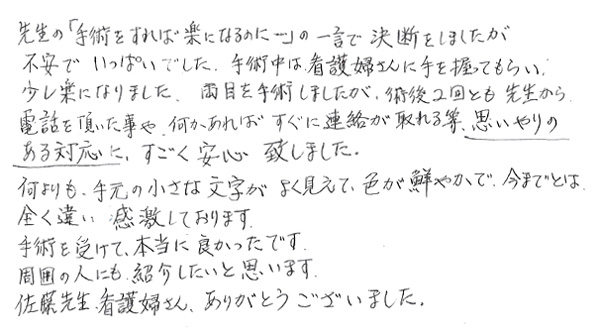 先生の「手術をすれば楽になるのに…」の一言で決断をしましたが
不安でいっぱいでした。手術中は看護婦さんに手を握ってもらい、
少し楽になりました。両目を手術しましたが、術後2回とも先生から
電話を頂いた事や、何かあればすぐに連絡が取れる等、思いやりの
ある対応に、すごく安心致しました。
何よりも、手元の小さな文字がよく見えて、色が鮮やかで、今までとは
全く違い感激しております。
手術を受けて、本当に良かったです。
周囲の人にも紹介したいと思います。
佐藤先生、看護婦さん、ありがとうございました。